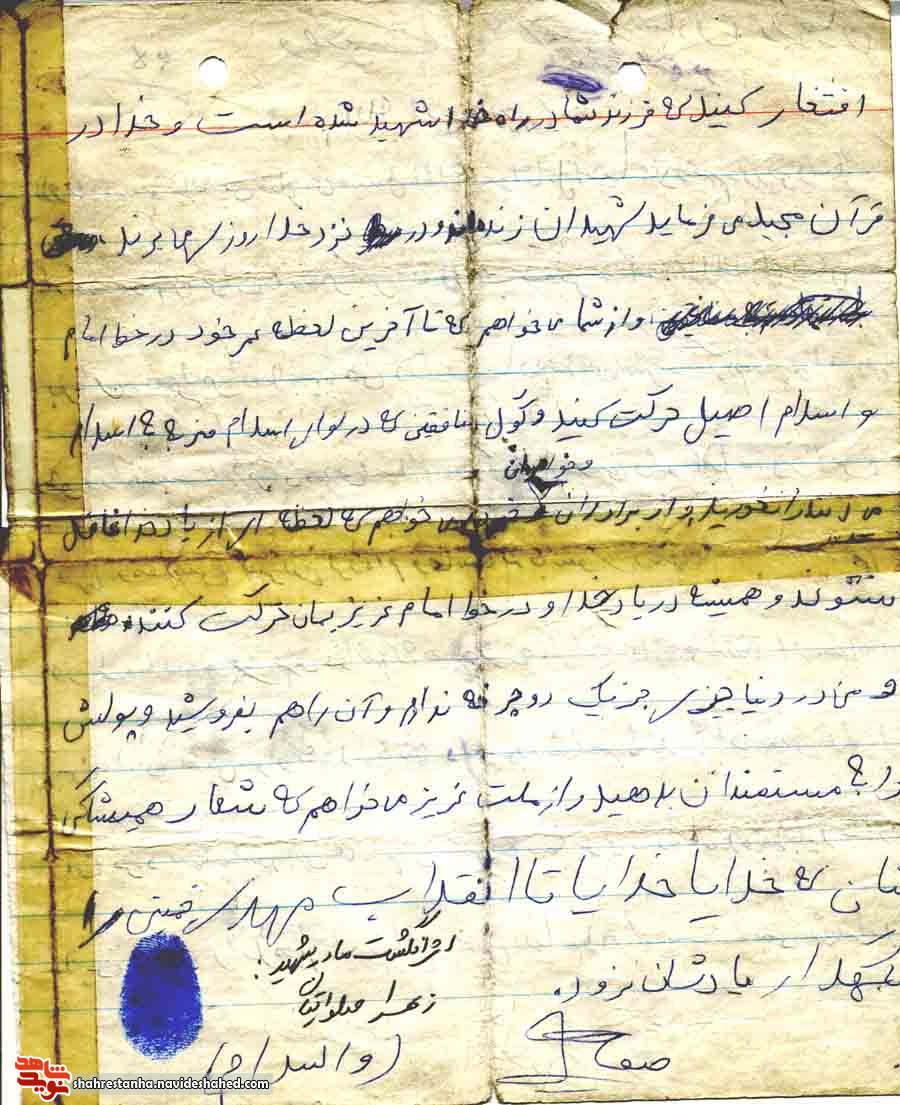 افتخار کنید که فرزند شما در راه خدا شهید شده است و خدا در
قرآن مجید می فرماید شهیدان زنده اند و در نزد خدا روزی می برند
و از شما می خواهم که تا آخرین لحظه عمر خود در خط امام
و اسلام اصیل حرکت کنید و گول منافقین که در لوای اسلام ضربه به اسلام
و خواهران
می زنند را نخورید و از برادران می خواهم که لحظه ای از یاد خدا غافل
نشوند و همیشه در یاد خدا و در خط امام عزیزمان حرکت کنند
و من در دنیا چیزی جز یک دوچرخه ندارم و آن را هم بفروشید و پولش
را به مستمندان بدهید و از ملت عزیز می خواهم که شعار همیشگی
شان که خدایا خدایا تا انقلاب مهدی خمینی را
نگهدار یادشان نرود.
اثر انگشت مادر شهید :
زهرا
(والسلام)
shahrestanha.navideshahed.com